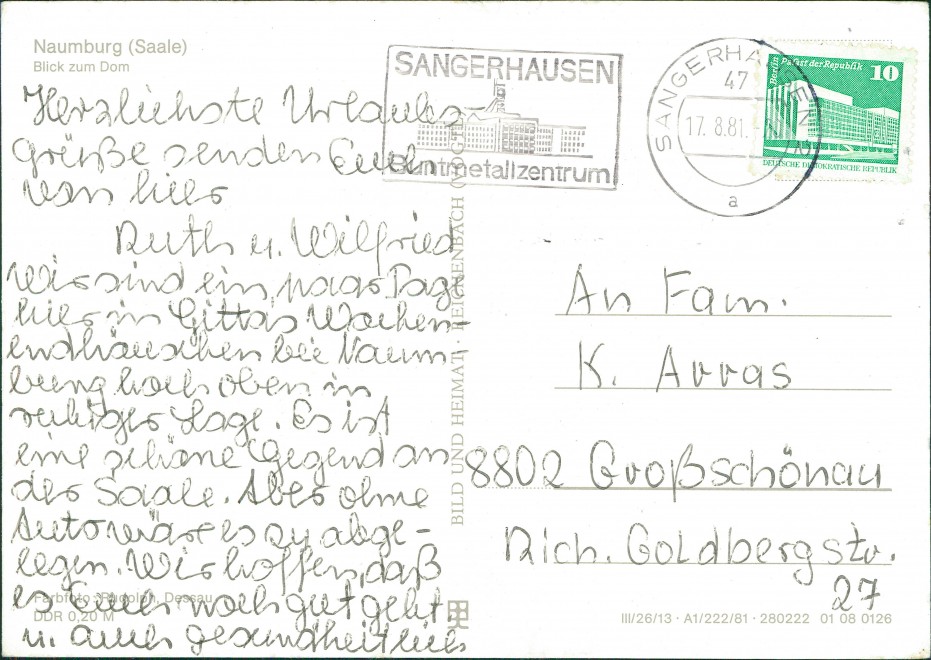 Naumburg (Saale)
Blick zum Dom
Herzlichste Urlaubs-
Grüße senden Euch
von hier
Ruth u. Wilfried
Wir sind ein paar Tage
hier in Gittas Wochen-
endhäuschen bei Naum-
burg hoch oben in
ruhiger Lage. Es ist
eine schöne Gegend an
der Saale. Aber ohne
Auto wär es zu abge-
legen. Wir hoffen, daß
es Euch noch gut geht
u. auch gesundheitlich
Farbfoto: Rudolph, Dessau
DDR 0,20 M
BILD UND HEIMAT · REICHENBACH (VOGTL)
SANGERHAUSEN
Buntmetallzentrum
SANGERHAUSEN
47
17. 8.81.
a
Berlin Palast der Republik 10
DEUTSCHE DEMOKRATISCHE REPUBLIK
An Fam.
K. Arras
8802 Großschönau
Rich. Goldbergstr.
27
III/26/13 · A1/222/81 · 280222 01 08 0126